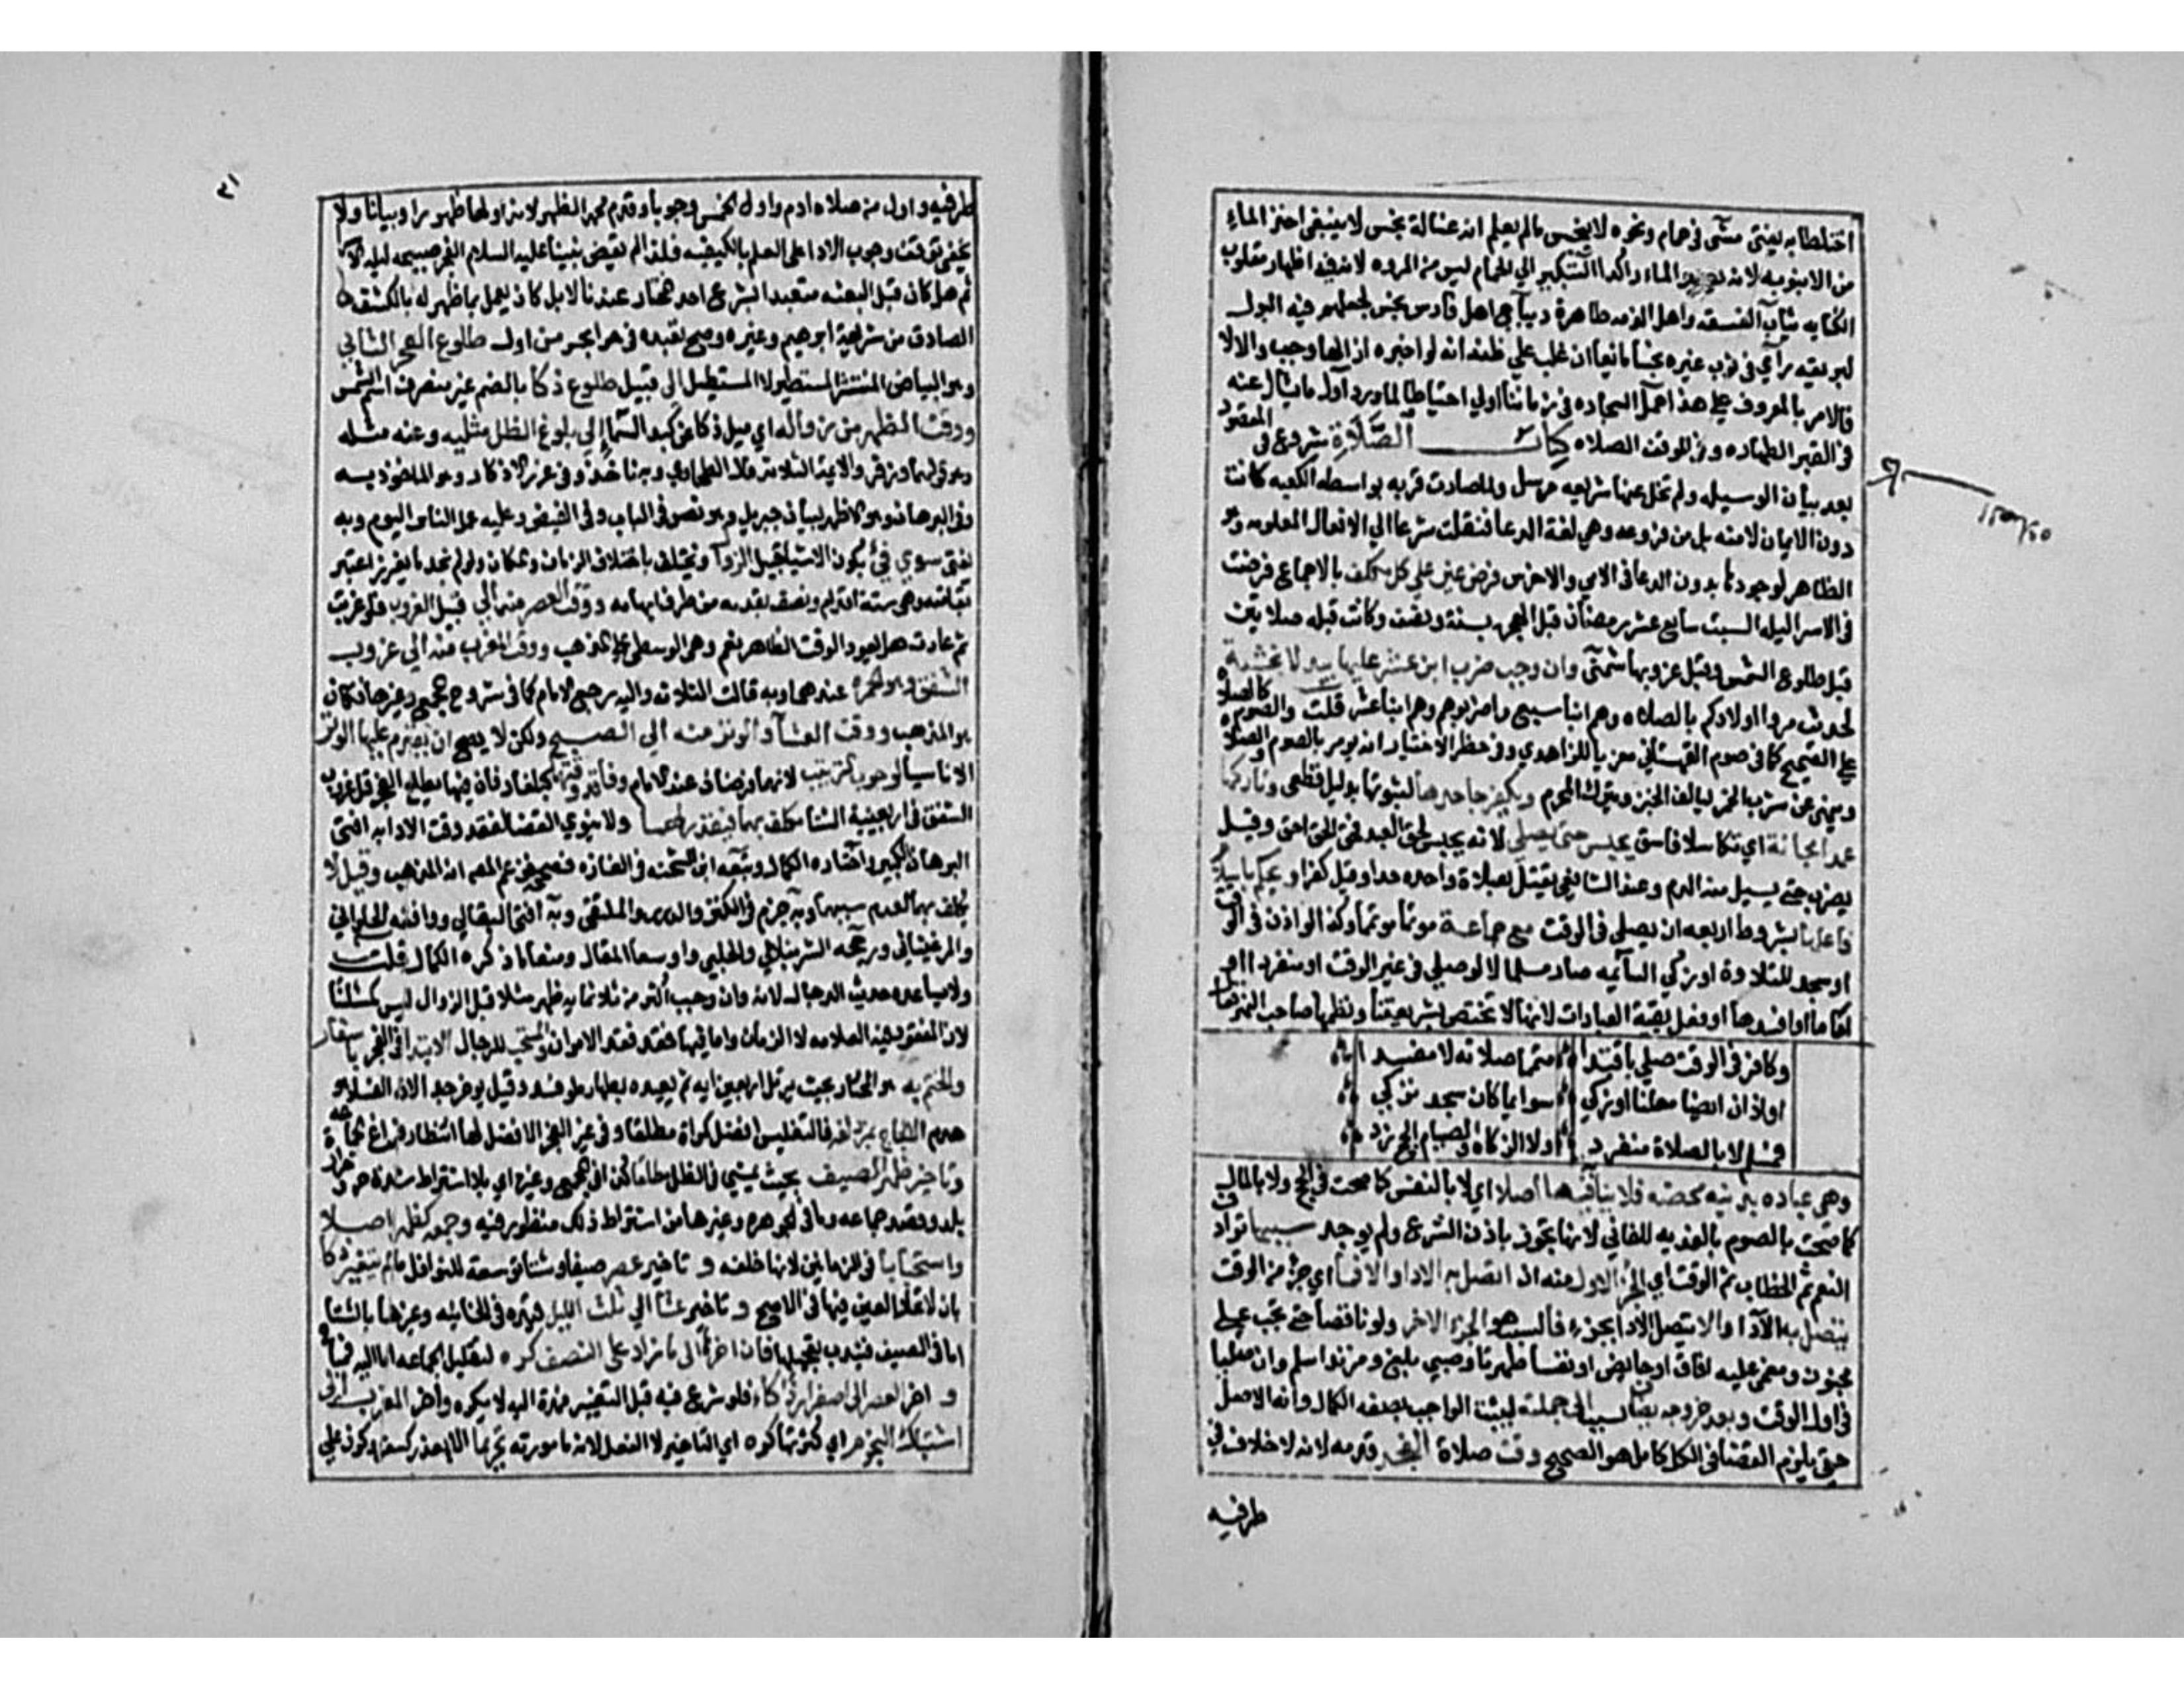 اختلطا به يفتي مشى في حمام ونحوه لا ينجس ما لم يعلم انه غسالة نجس لا ينبغي اخذ الماء
من الانبوبه لانه يصير الماء راكدا التبكير الي الحمام ليس من المروه لان فيه اظهار مقلوب
الكنايه ثياب الفسقه واهل الذمه طاهرة ديباج اهل فارس نجس لجعلهم فيه البول
لبريقه رآي في ثوب غيره نجسا مانعا ان غلب علي ظنه انه لو اخبره ازالها وجب والا لا
فالامر بالمعروف علي هذا حمل السجاده في زماننا اولي احتياطا لما ورد اول ما يسال عنه
في القبر الطهاره وفي الموقف الصلاه كتاب الصلاة شروع في المقصود
بعد بيان الوسيله ولم تخل عنها شريعه مرسل ولما صارت قربه بواسطه الكعبه كانت
دون الايمان لا منه بل من فروعه وهي لغة الدعا فنقلت شرعا الي الافعال المعلومه وهو
الظاهر لوجودها بدون الدعا في الامي والاخرس فرض عين علي كل مكلف بالاجماع فرضت
في الاسرا ليله السبت سابع عشر رمضان قبل الهجره بسنة ونصف وكانت قبله صلاتين
قبل طلوع الشمس وقبل غروبها شمني وان وجب ضرب ابن عشر عليها بيد لا بخشبة
لحديث مروا اولادكم بالصلاه وهم ابنا سبع واضربوهم وهم ابنا عشر قلت والصوم كالصلاة
علي الصحيح كما في صوم القهستاني معزيا للزاهدي وفي حظر الاختيار انه يومر بالصوم والصلاة
وينهي عن شرب الخمر ليالف الخير ويترك المحرم ويكفر جاحدها لثبوتها بدليل قطعي وتاركها
عمدا مجانة اي تكاسلا فاسق يحبس حتي يصلي لانه يحبس لحق العبد فحق الحق احق وقيل
يضرب حتي يسيل منه الدم وعند الشافعي يقتل بصلاة واحده حدا وقيل كفرا ويحكم باسلام
فاعلها بشروط اربعه ان يصلي في الوقت مع جماعة موتما متمما وكذا لو اذن في الوقت
او سجد للتلاوة او زكي السائمه صار مسلما لا لو صلي في غير الوقت او منفردا او
اماما او افسدها او فعل بقية العبادات لانها لا تختص بشريعتنا ونظمها صاحب النهر فقال
وكافر في الوقت صلي باقتدا متمما صلاته لا مفسدا
او اذن ايضا معلنا او زكي سوايما كان سجد تزكي
فمسلم لا بالصلاة منفرد اولا الزكاه والصيام الحج زد
وهي عباده بدنيه محضه فلا نيابه فيها اصلا اي لا بالنفس كما صحت في الحج ولا بالمال
كما صحت بالصوم بالفديه للفاني لانها تجوز باذن الشرع ولم يوجد سببها ترادف
النعم ثم الخطاب ثم الوقت اي الجزء الاول منه ان اتصل به الادا والا فما اي جزء من الوقت
يتصل به الادا والا يتصل الادا بجزء فالسبب هو الجزء الاخر ولو ناقصا حتي تجب علي
مجنون ومغمى عليه افاقا او حايض او نفسا طهرتا وصبي بلغ ومرتد اسلم وان صليا
في اول الوقت وبعد خروجه يضاف السبب الي جملته ليثبت الواجب بصفه الكمال وانه الاصل
حتي يلزم القضا في الكل كامل هو الصحيح وقت صلاة الفجر قدمه لانه لا خلاف في
طرفيه
٣١
طرفيه واول من صلاه ادم واول الخمس وجوبا وقدم محمد الظهر لانه اولها ظهورا وبيانا ولا
يخفى توقف وجوب الادا على العلم بالكيفيه فلذا لم يقض نبينا عليه السلام الفجر صبيحه ليله الاسرا
ثم هل كان قبل البعثه متعبدا بشرع احد المختار عندنا لا بل كان يعمل بما ظهر له بالكشف
الصادق من شريعة ابرهيم وغيره وصح تعبده في حرا بحر من اول طلوع الفجر الثاني
وهو البياض المنتشر المستطير لا المستطيل الى قبيل طلوع ذكا بالضم غير منصرف اسم الشمس
ووقت الظهر من زواله اي ميل ذكا عن كبد السما الي بلوغ الظل مثليه وعنه مثله
وهو قولهما وزفر والايمة الثلاثه قال الطحاوي وبه ناخذ وفي غرر الاذكار وهو الماخوذ به
وفي البرهان وهو الاظهر لبيان جبريل وهو نص في الباب وفي الفيض وعليه عمل الناس اليوم وبه
يفتى سوى فيئ يكون للاشيا قبيل الزوال ويختلف باختلاف الزمان والمكان ولو لم يجد ما يغرز اعتبر
بقامته وهي ستة اقدام ونصف بقدمه من طرف ابهامه ووقت العصر منه الي قبيل الغروب فلو غربت
ثم عادت هل يعود الوقت الظاهر نعم وهي الوسطى علي المذهب ووقت المغرب منه الي غروب
الشفق وهو الحمرة عندهما وبه قالت الثلاثه واليه رجع الامام كما في شروح المجمع وغيرها فكان
هو المذهب ووقت العشا والوتر منه الي الصبح ولكن لا يصح ان يقدم عليها الوتر
الا ناسيا لوجوب الترتيب لانهما فرضان عند الامام وفاقد وقتهما كبلغار فان فيها يطلع الفجر قبل غروب
الشفق في اربعينية الشتا مكلف بهما فيقدر لهما ولا ينوي القضا لفقد وقت الادا به افتى
البرهان الكبير واختاره الكمال وتبعه ابن الشحنه في الغازه فصححه فزعم المص انه المذهب وقيل لا
يكلف بهما لعدم سببهما وبه جزم في الكنز والدرر والملتقى وبه افتى البقالي ووافقه الحلواني
والمرغيناني ورجحه الشرنبلالي والحلبي واوسعا المقال ومنعا ما ذكره الكمال قلت
ولا يساعده حديث الدجال لانه وان وجب اكثر من ثلاثمايه ظهر مثلا قبل الزوال ليس كمثلنا
لان المفقود فيه العلامه لا الزمان واما فيها فقد فقد الامران والمستحب للرجال الابتدا في الفجر باسفار
والختم به هو المختار بحيث يرتل اربعين ايه ثم يعيده بطهاره لو فسد وقيل يوخر جدا لان الفساد موهوم
الا لحاج بمزدلفه فالتغليس افضل كمراة مطلقا وفي غير الفجر الافضل لها انتظار فراغ الجماعة
وتاخير ظهر الصيف بحيث يمشي في الظل مطلقا كذا في المجمع وغيره اي بلا اشتراط شدة حر وحرارة
بلد وقصد جماعه وما في الجوهره وغيرها من اشتراط ذلك منظور فيه وجمعه كظهر اصلا
واستحبابا في الزمانين لانها خلفه و تاخير عصر صيفا وشتا توسعة للنوافل ما لم يتغير ذكا
بان لا تحار العين فيها في الاصح و تاخير عشا الي ثلث الليل قيده في الخانيه وغيرها بالشتا
اما في الصيف فيندب تعجيلها فان اخرها الى ما زاد على النصف كره لتقليل الجماعه اما اليه فمباح
و اخر العصر الى اصفرار ذكاء فلو شرع فيه قبل التغير فمده اليه لا يكره واخر المغرب الى
اشتباك النجوم اي كثرتها كره اي التاخير لا الفعل لانه مامور به تحريما الا بعذر كسفر وكونه علي